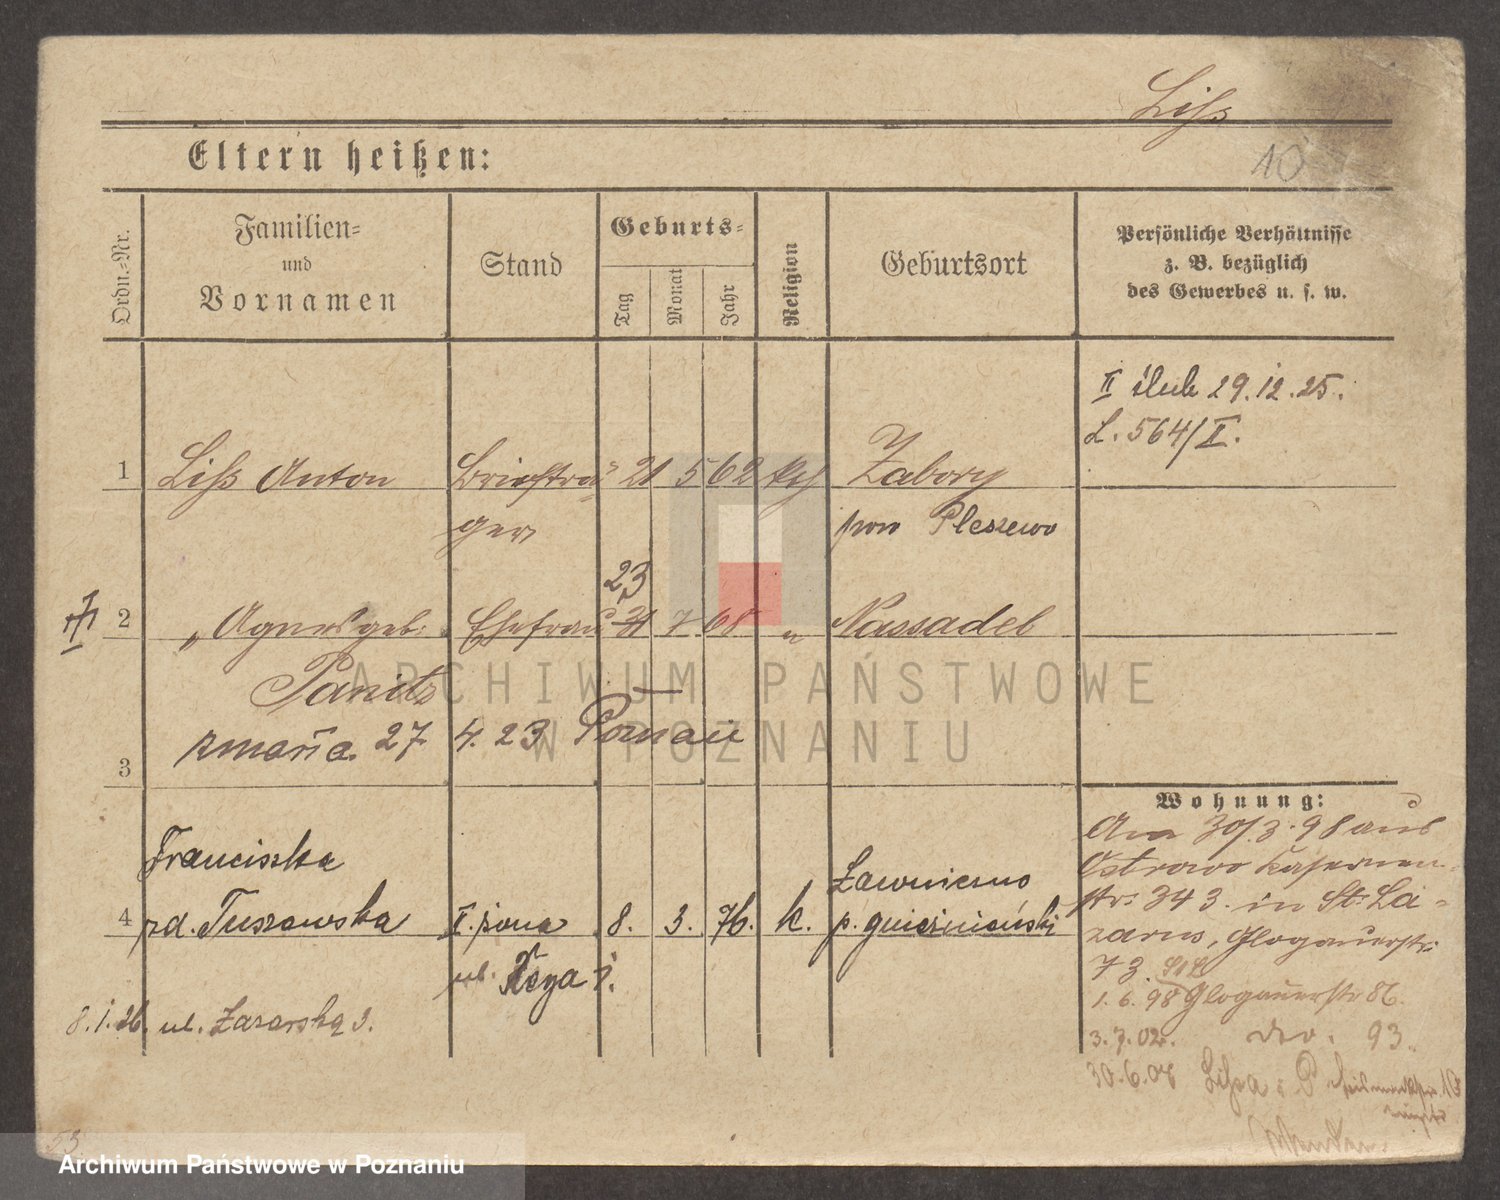 Liss
10
Eltern heißen:
Ordn.-Nr.
Familien-
und
Vornamen
Stand
Geburts-
Tag
Monat
Jahr
Religion
Geburtsort
Persönliche Verhältnisse
z. B. bezüglich
des Gewerbes u. s. w.
II ślub 29.12.25.
L. 564/I.
1 Liss Anton Briefträ- 21 5 62 kth Zabory
ger Pleszewo
23
2 " Agnes geb. Ehefrau 31 7 68 " Nassadel
zmarła 27 4. 23 Poznań
3
Wohnung:
Am 30/3. 98 aus
Ostrowo Kasernen-
str. 343. in St. La-
zarus, Glogauerstr.
73.
1. 6. 98 Glogauerstr 86.
3. 7. 02. do. 93.
30.6.08
Franciszka
4 zd. Tuszewska II. żona 8. 3. 76. k. Ławniczno
p. gnieźnieński
ul. Kęya
8.1.26. ul. Łazarska 3.
53
ARCHIWUM PAŃSTWOWE
W POZNANIU
Archiwum Państwowe w Poznaniu